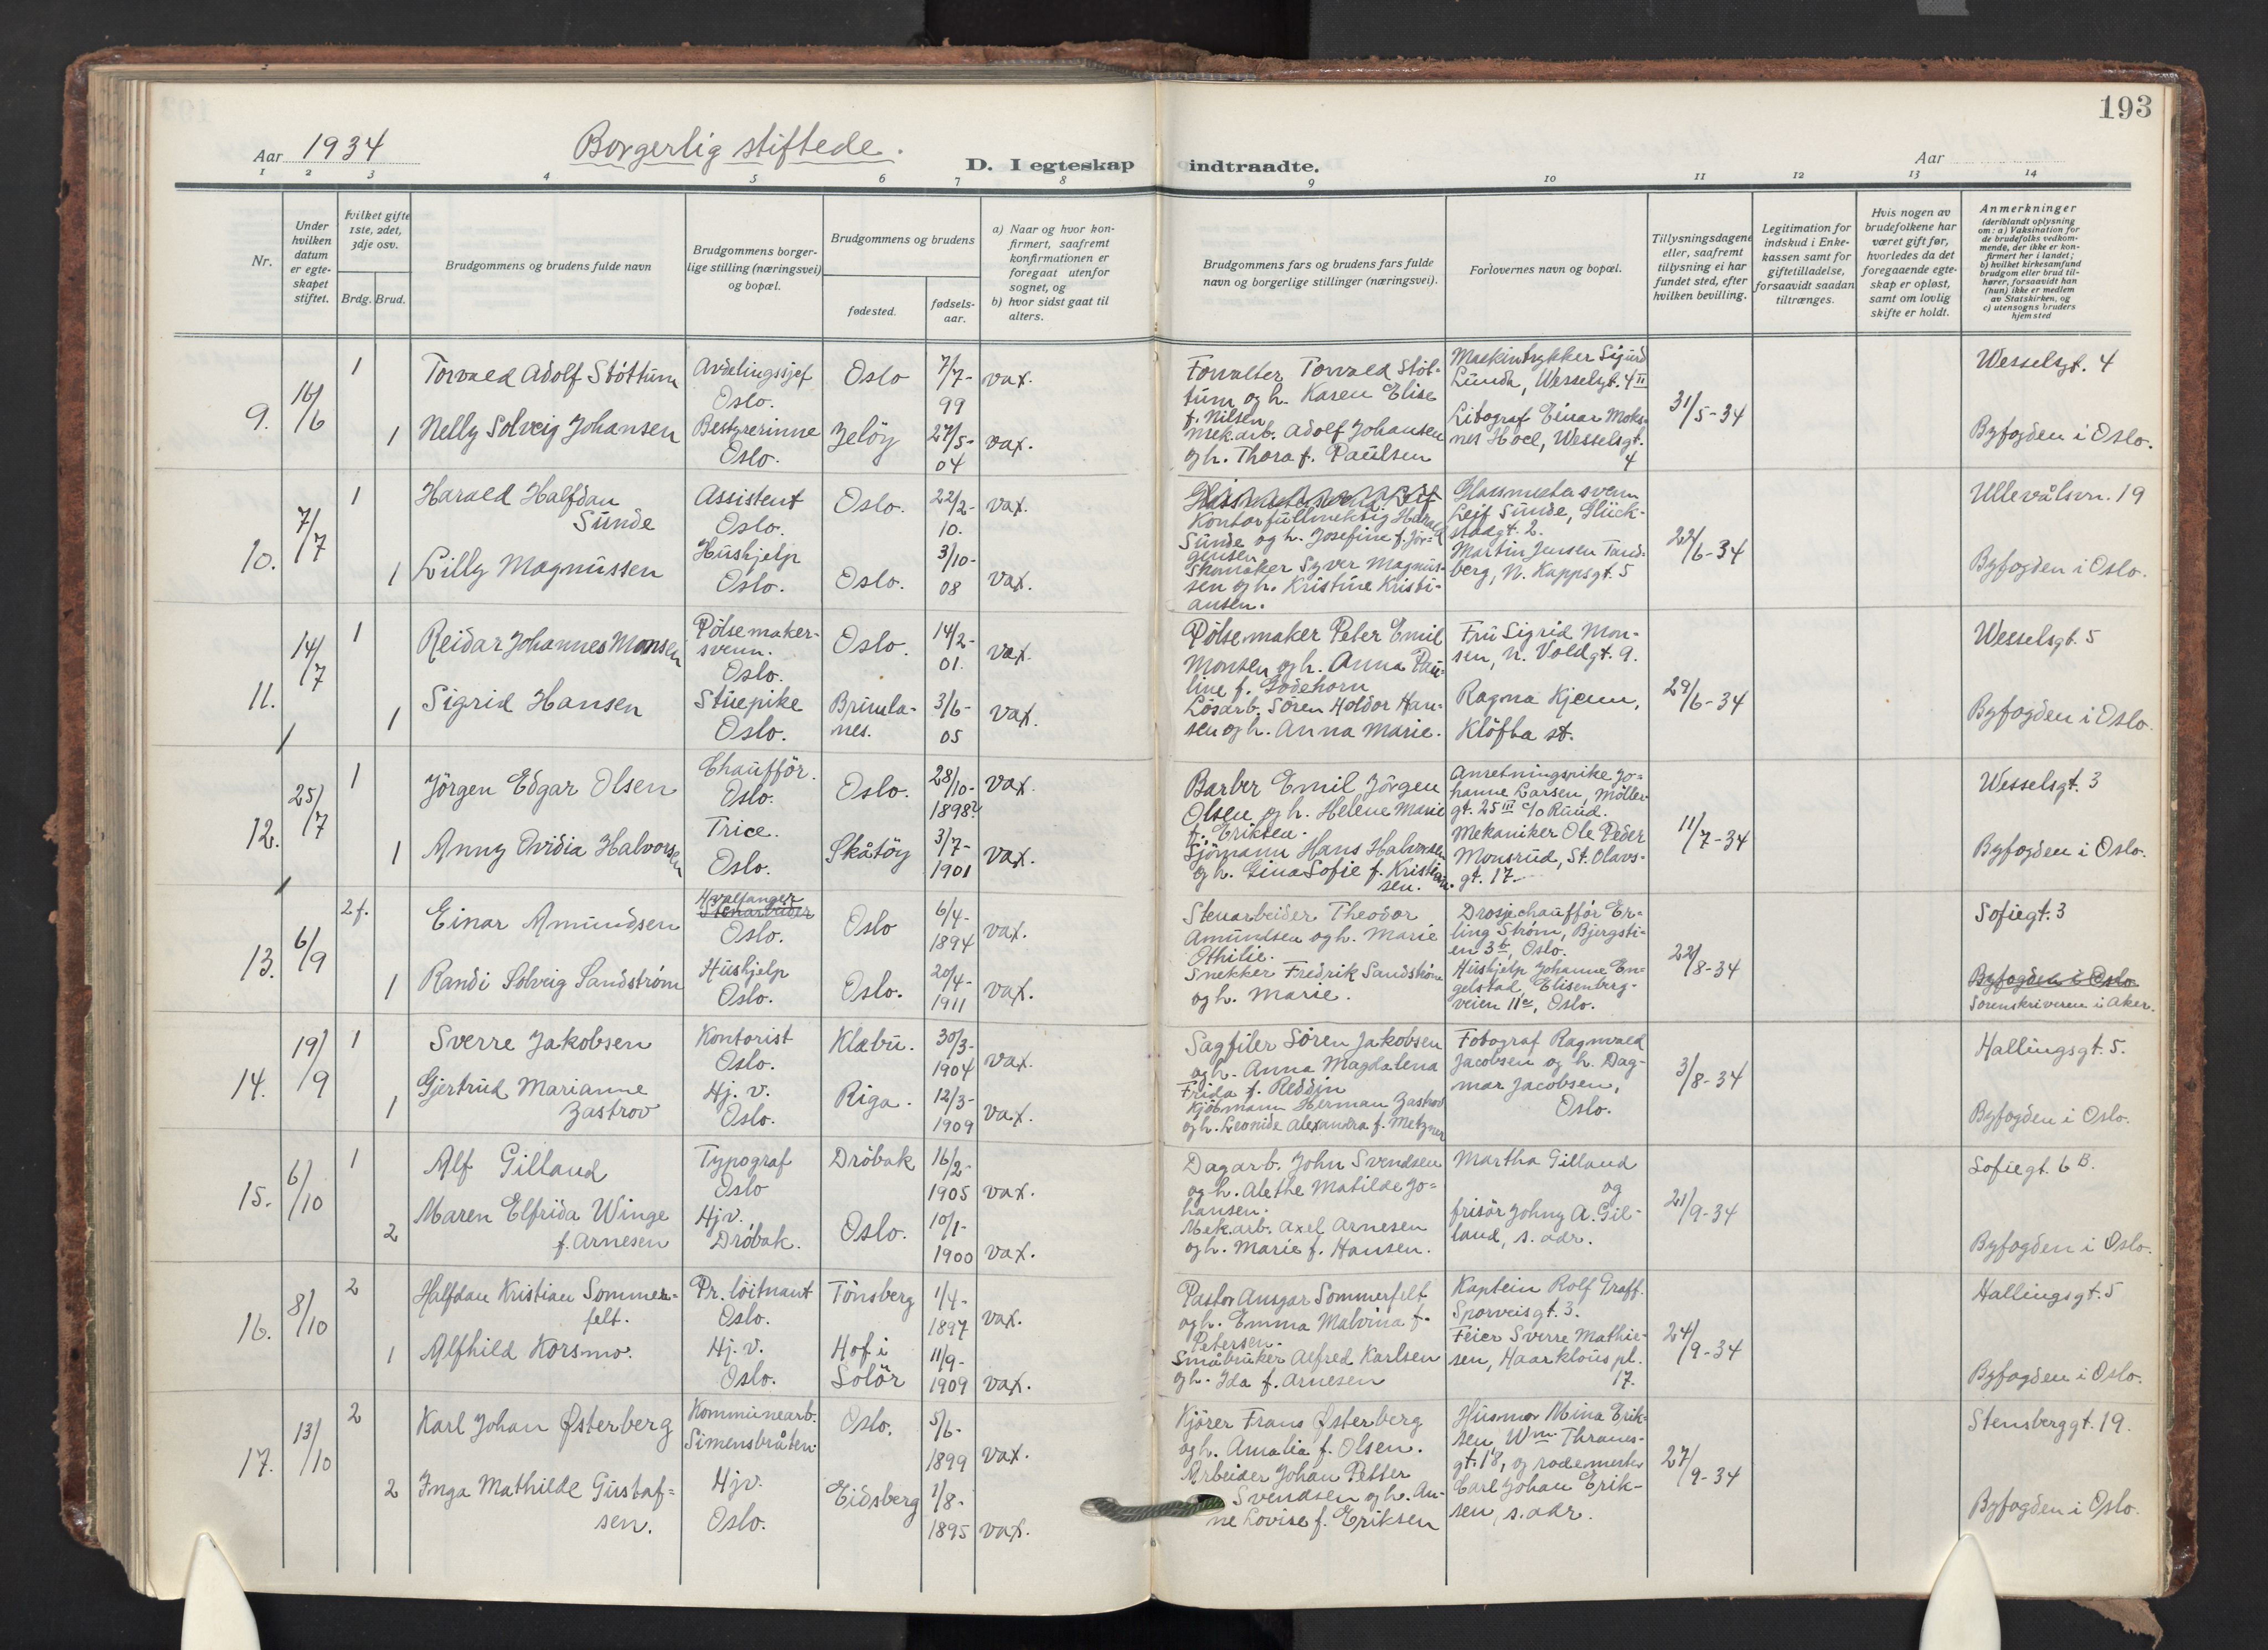 193
Aar 1934
Borgerlig stiftede.
D. I egteskap indtraadte.
Aar
1 2 3 4 5 6 7 8 9 10 11 12 13 14
Nr.
Under hvilken datum er egteskapet stiftet.
Hvilket gifte 1ste, 2det, 3dje osv.
Brdg. Brud.
Brudgommens og brudens fulde navn
Brudgommens borgerlige stilling (næringsvei) og bopæl.
Brudgommens og brudens
fødested.
fødselsaar.
a) Naar og hvor konfirmert, saafremt konfirmationen er foregaat utenfor sognet, og
b) hvor sidst gaat til alters.
Brudgommens fars og brudens fars fulde navn og borgerlige stillinger (næringsvei).
Forlovernes navn og bopæl.
Tillysningsdagene eller, saafremt tillysning ei har fundet sted, efter hvilken bevilling.
Legitimation for indskud i Enkekassen samt for giftetilladelse, forsaavidt saadan tiltrænges.
Hvis nogen av brudefolkene har været gift før, hvorledes da det foregaaende egteskap er opløst, samt om lovlig skifte er holdt.
Anmerkninger
(deriblandt oplysning om: a) Vaksination for de brudefolks vedkommende, der ikke er konfirmert her i landet;
b) hvilket kirkesamfund brudgom eller brud tilhører, forsaavidt han (hun) ikke er medlem av Statskirken, og
c) utensogns bruders hjemsted
9. 16/6
1 Torvald Adolf Støttum
Avdelingssjef Oslo.
Oslo 7/7-99 vax.
1 Nelly Solveig Johansen
Bestyrerinne Oslo.
Jeløy 27/5-04 vax.
Forvalter Torvald Støttum og h. Karen Elise
f. Nilsen
Mek.arb. Adolf Johansen
og h. Thora f. Paulsen
Maskintrykker Sigurd
Lunde, Wesselsgt. 4 II
Litograf Einar Moksnes Hoel, Wesselsgt.
4
31/5-34
Wesselsgt. 4
Byfogden i Oslo.
10. 7/7
1 Harald Halfdan
Sunde
Assistent Oslo.
Oslo. 22/2-10. vax.
1 Lilly Magnussen
Hushjelp Oslo.
Oslo. 3/10-08 vax.
Kontorfullmektig Harald
Sunde og h. Josefine f. Jørgensen
Skomaker Syver Magnussen og h. Kristine Kristiansen.
Glassmestersvenn
Leif Sunde, Glückstadgt. 2.
Martin Jensen Tandberg, N. Kappsgt. 5
22/6-34
Ullevålsvn. 19
Byfogden i Oslo.
11. 14/7
1 Reidar Johannes Monsen
Pölsemakersvenn. Oslo.
Oslo. 14/2-01. vax.
1 Sigrid Hansen
Stuepike Oslo.
Brunlanes. 3/6-05 vax.
Pölsemaker Peter Emil
Monsen og h. Anna Pauline f. Godehorn
Løsarb. Søren Holdor Hansen og h. Anna Marie.
Fru Sigrid Monsen, N. Voldgt. 9.
Ragna Kjenn,
Kløfta st.
29/6-34
Wesselsgt. 5
Byfogden i Oslo.
12. 25/7
1 Jörgen Edgar Olsen
Chauffør. Oslo.
Oslo. 28/10-1898 vax.
1 Anny Ovidia Halvorsen
Trice. Oslo.
Skåtøy 3/7-1901 vax.
Barber Emil Jörgen
Olsen og h. Helene Marie
f. Eriksen.
Sjömann Hans Halvorsen
og h. Gina Sofie f. Kristiansen.
Anretningspike Johanne Larsen, Möllergt. 25 III c/o Ruud.
Mekaniker Ole Peder
Monsrud, St. Olavsgt. 17.
11/7-34
Wesselsgt. 3
Byfogden i Oslo.
13. 6/9
2 f. Einar Amundsen
Hvalfanger
Stenarbeider
Oslo.
Oslo 6/4-1894 vax.
1 Randi Solveig Sandstrøm
Hushjelp Oslo.
Oslo. 20/4-1911 vax.
Stenarbeider Theodor
Amundsen og h. Marie
Othilie.
Snekker Fredrik Sandstrøm
og h. Marie.
Drosjechauffør Erling Strøm, Bjergstien 3b, Oslo.
Hushjelp Johanne Engelstad, Elisenbergveien 11a, Oslo.
22/8-34
Sofiegt. 3
Byfogden i Oslo
Sorenskriveren i Aker.
14. 19/9
1 Sverre Jakobsen
Kontorist Oslo.
Klæbu. 30/3-1904 vax.
1 Gjertrud Marianne
Zastrov
Hj. v. Oslo.
Riga. 12/3-1909 vax.
Sagfiler Søren Jakobsen
og h. Anna Magdalena
Frida f. Reddin
Kjøbmann Herman Zastrov
og h. Leonide Alexandra f. Metzner
Fotograf Ragnvald
Jacobsen og h. Dagmar Jacobsen,
Oslo.
3/8-34
Hallingsgt. 5.
Byfogden i Oslo.
15. 6/10
1 Alf Gilland
Typograf Oslo
Dröbak 16/2-1905 vax.
2 Maren Elfrida Winge
f. Arnesen
Hjv. Dröbak.
Oslo. 10/1-1900 vax.
Dagarb. John Svendsen
og h. Alethe Matilde Johansen.
Mek.arb. Axel Arnesen
og h. Marie f. Hansen.
Martha Gilland
og
frisør Johny A. Gilland, s. adr.
21/9-34
Sofiegt. 6 B.
Byfogden i Oslo.
16. 8/10
2 Halfdan Kristian Sommerfelt.
Pr. löitnant Oslo.
Tönsberg 1/4-1897 vax.
1 Alfhild Korsmo.
Hj. v. Oslo.
Hof i Solör 11/9-1909 vax.
Pastor Ansgar Sommerfelt
og h. Emma Malvina f.
Petersen.
Småbruker Alfred Karlsen
og h. Ida f. Arnesen
Kaptein Rolf Graff.
Sporveisgt. 3.
Feier Sverre Mathiesen, Haarklous pl.
17.
24/9-34
Hallingsgt. 5
Byfogden i Oslo.
17. 13/10
2 Karl Johan Østerberg
Kommunearb. Simensbråten
Oslo. 5/6-1899 vax.
2 Inga Mathilde Gustafsen.
Hjv. Oslo.
Eidsberg 1/8-1895 vax.
Kjører Frans Østerberg
og h. Amalia f. Olsen.
Arbeider Johan Petter
Svendsen og h. Anne Lovise f. Eriksen
Husmor Mina Eriksen, Wm. Thranesgt. 18, og rodemester
Carl Johan Eriksen, s. adr.
27/9-34
Stensberggt. 19.
Byfogden i Oslo.